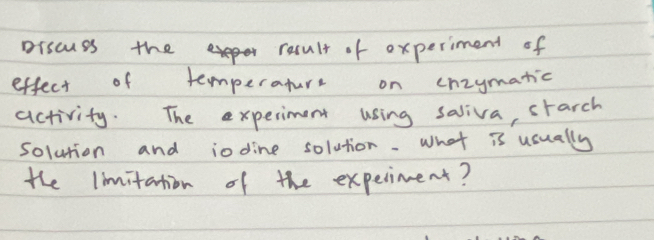 Discuss the result of experiment of
effect of temperature on enzymatic
activity. The experiment using saliva, starch
solution and iodine solution. What is usually
the limitation of the experiment?